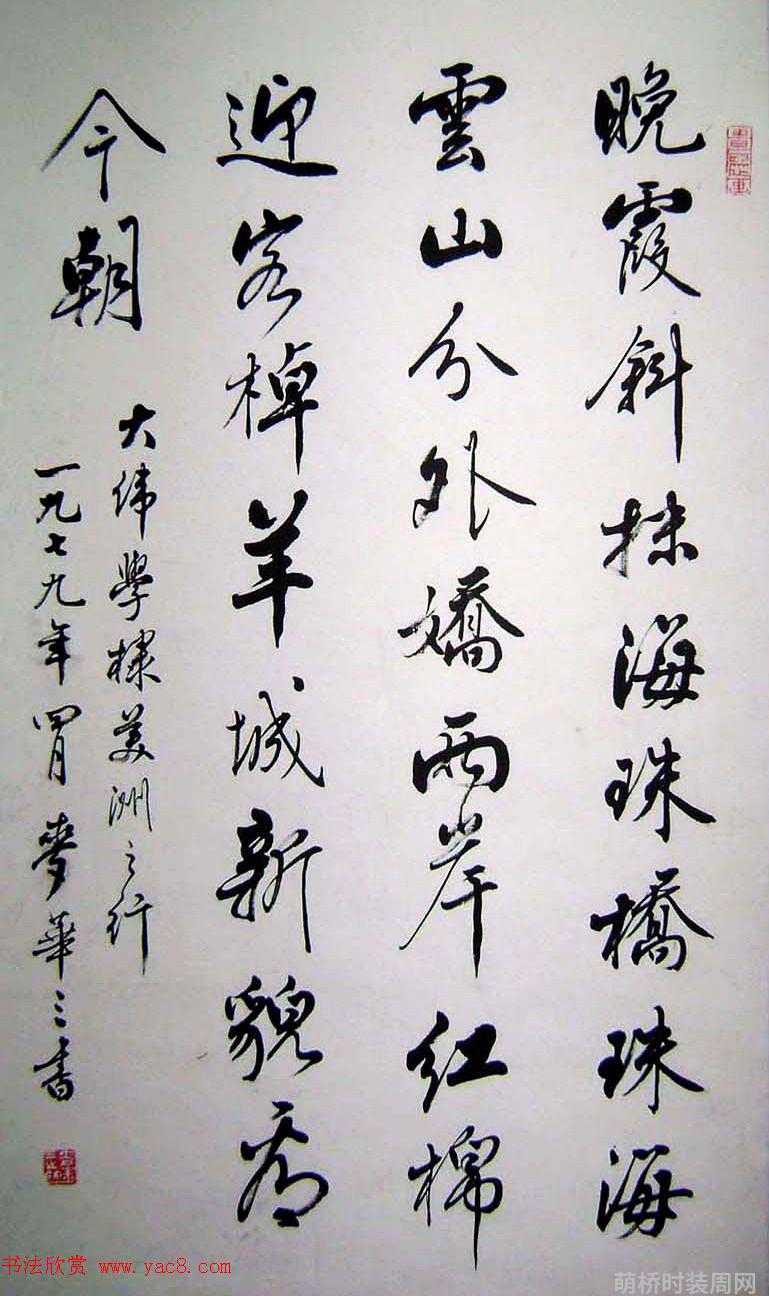 晚霞斜抹海珠橋珠海
雲山分外嬌兩岸紅棉
迎客棹羊城新貌看
今朝
大偉學棣美洲之行
一九七九年四月麥華三書
书法欣赏 www.yac8.com
萌桥时装周网